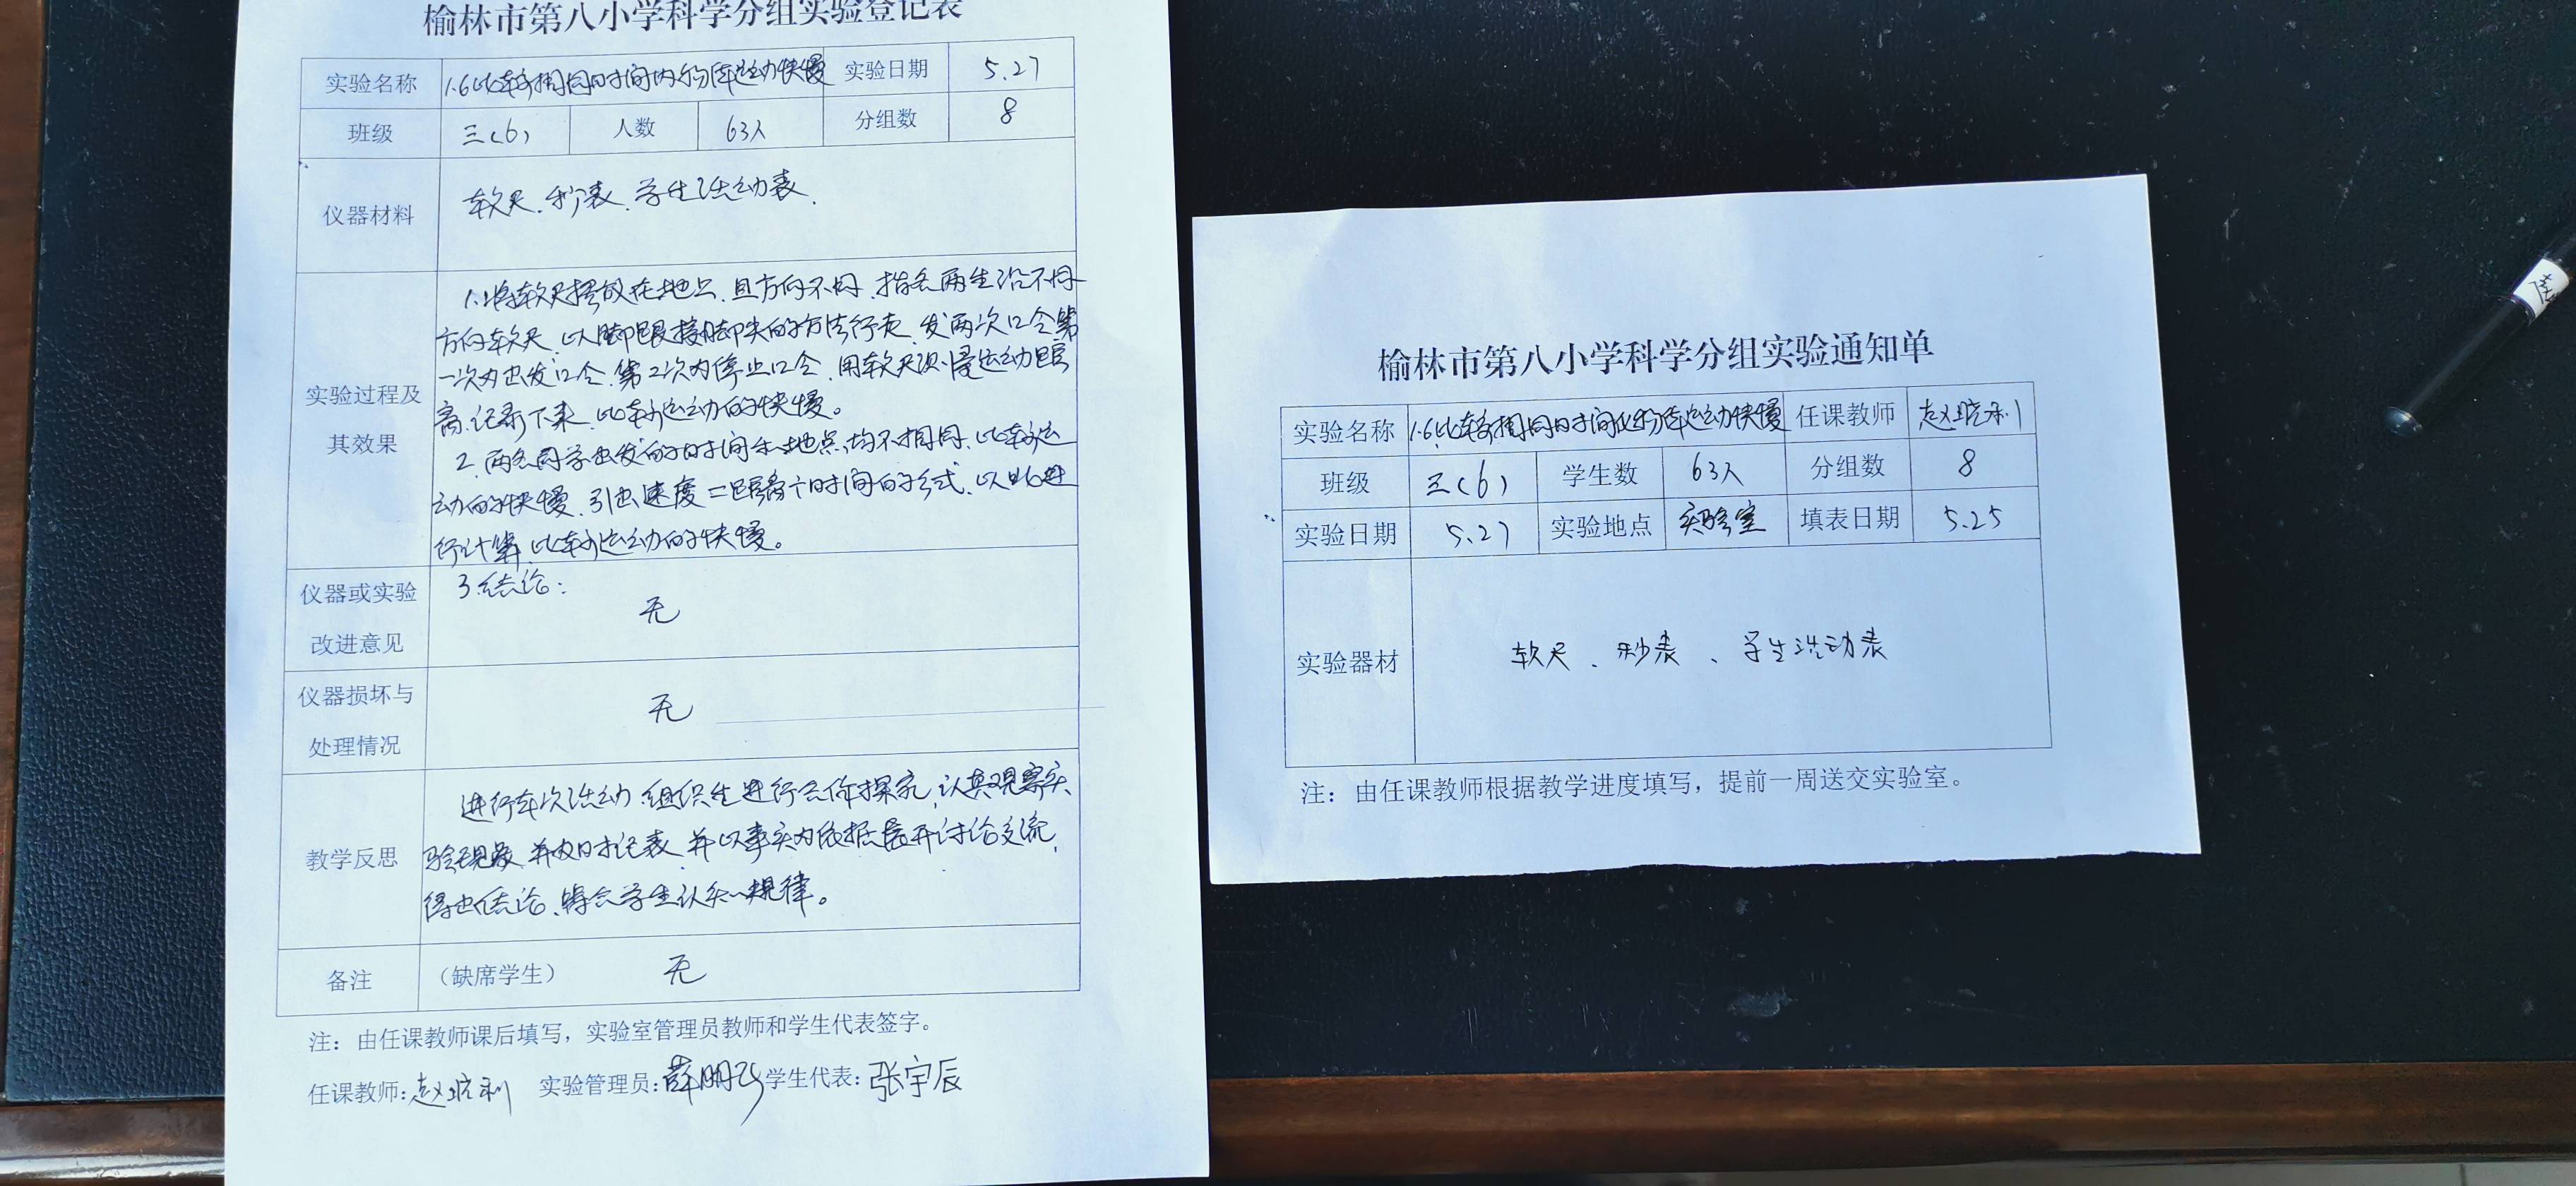 榆林市第八小学科学分组实验登记表
实验名称 1.6比较相同时间内物体运动快慢 实验日期 5.27
班级 三(6) 人数 63人 分组数 8
仪器材料 软尺、秒表、学生活动表.
实验过程及其效果
1.将软尺摆放在地上,且方向不同,指名两生沿不同
方向软尺,以脚跟接脚尖的方法行走,发两次口令第
一次为出发口令,第2次为停止口令,用软尺测量运动距
离,记录下来,比较运动的快慢。
2.两名同学出发的时间和地点均不相同,比较运
动的快慢,引出速度=距离÷时间的公式,以此进
行计算,比较运动的快慢。
3.结论:
仪器或实验改进意见 无
仪器损坏与处理情况 无
教学反思
进行本次活动,组织生进行合作探究,认真观察实
验现象,并及时记表,并以事实为依据展开讨论交流,
得出结论,符合学生认知规律。
备注 (缺席学生) 无
注:由任课教师课后填写,实验室管理员教师和学生代表签字。
任课教师:赵晓利 实验管理员:薛朋 学生代表:张宇辰
榆林市第八小学科学分组实验通知单
实验名称 1.6比较相同时间内物体运动快慢 任课教师 赵晓利
班级 三(6) 学生数 63人 分组数 8
实验日期 5.27 实验地点 实验室 填表日期 5.25
实验器材 软尺、秒表、学生活动表
注:由任课教师根据教学进度填写,提前一周送交实验室。